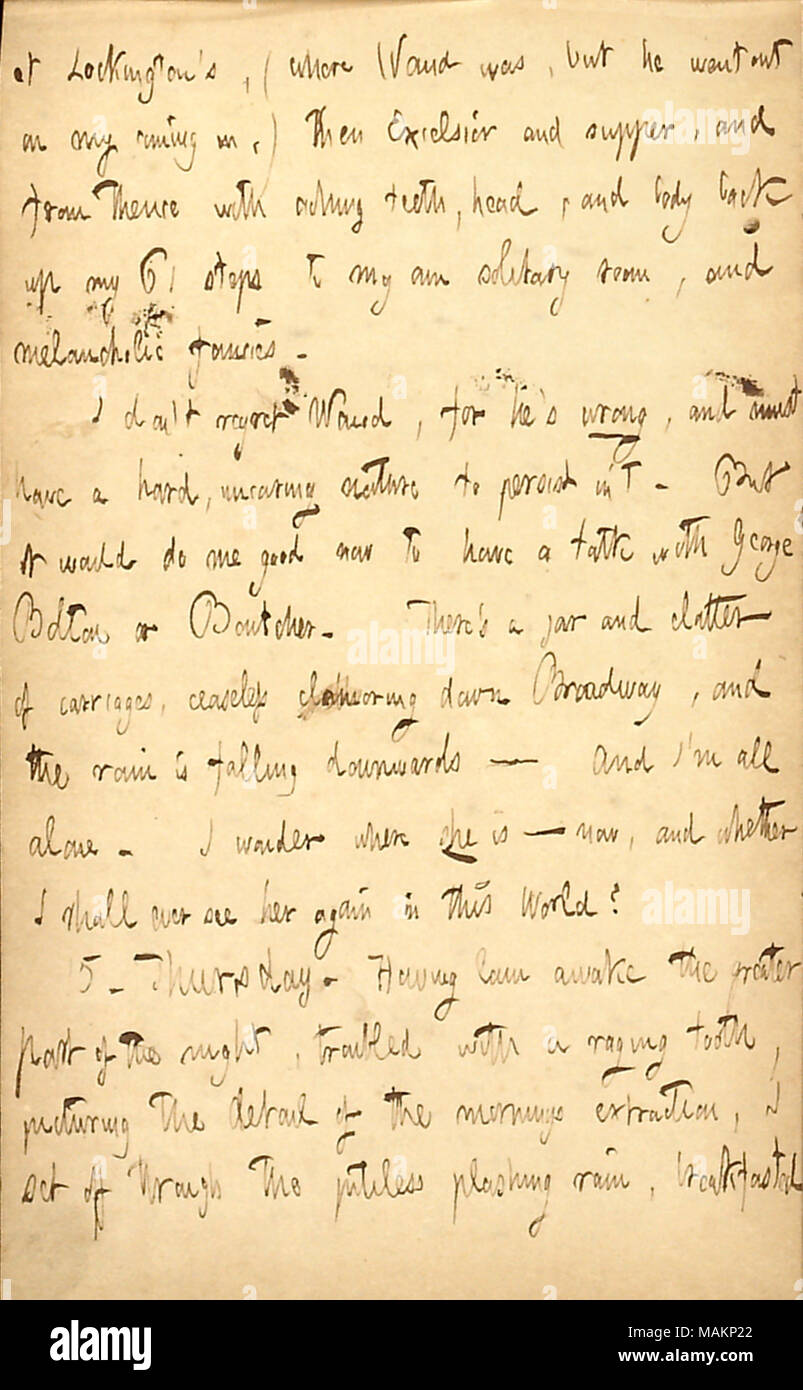 at Lockington's, (where Waud was, but he went out
on my coming in.) Then Excelsior and supper, and
from thence with aching teeth, head, and body back,
up my 61 steps to my own solitary room, and
melancholic fancies.
I don't regret Waud, for he's wrong, and must
have a hard, uncaring nature to persist in't. But
it would do me good now to have a talk with George
Bolton or Boutcher. There's a jar and clatter
of carriages, ceaseless clamoring down Broadway, and
the rain is falling downwards — And I'm all
alone. I wonder where she is — now, and whether
I shall ever see her again in this World?
5. Thursday. Having lain awake the greater
part of the night, troubled with a raging tooth,
picturing the detail of the mornings extraction, I
set off through the pitiless plashing rain, breakfasted
alamy
Image ID: MAKP22
www.alamy.com